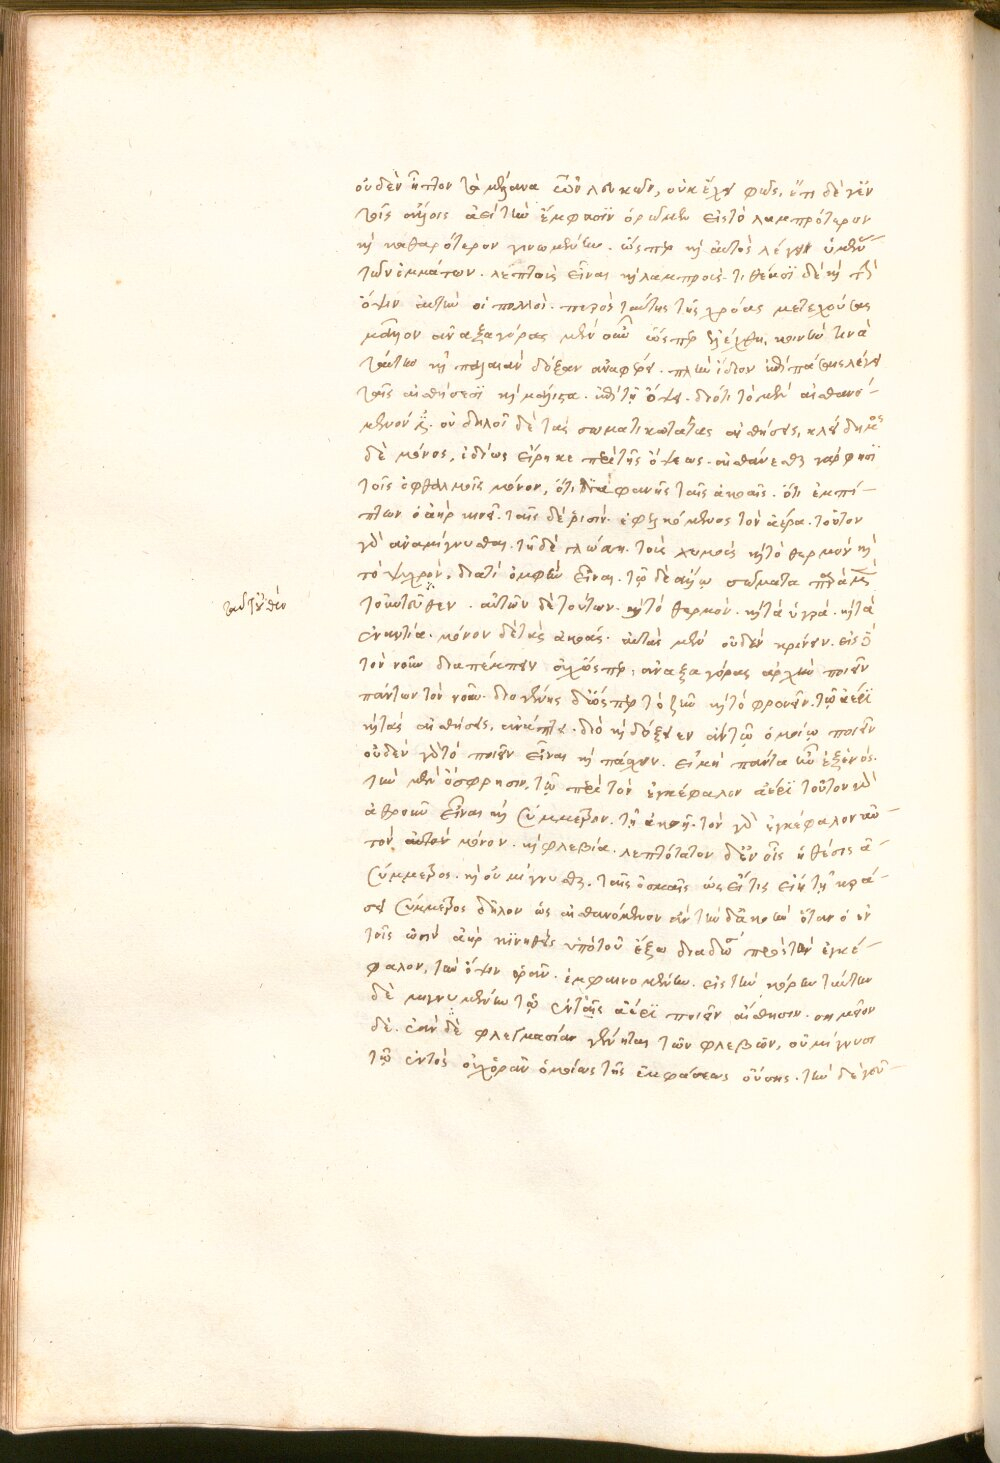 οὐδὲν ἧττον τὰ μέλανα τῶν λευκῶν, οὐκ ἔχει φῶς. ἔτι δὲ γ' ἐν
τοῖς ἄλλοις ἀεὶ τὴν ἔμφασιν ὁρῶμεν εἰς τὸ λαμπρότερον
καὶ καθαρότερον γινομένην. ὥσπερ καὶ αὐτὸς λέγει ὑμένας
τῶν ὀμμάτων. λεπτοὺς εἶναι καὶ λαμπρούς. τιθέασι δὲ καὶ
ὄψιν αὐτὴν οἱ πολλοὶ. πυρὸς ταύτης τῆς χρόας μετεχούσας
μᾶλλον ἀναξαγόρας μὲν οὖν ὥσπερ ἐλέχθη, κοινὴν τινὰ
ταύτην καὶ παλαιὰν δόξαν ἀναφέρει. πλὴν ἴδιον ἐπὶ πάσαις λέγει
ταῖς αἰσθήσεσι καὶ μάλιστα. ἐπὶ τῇ ὄψει. διότι τὸ μὲν αἰσθανό-
μενόν . οὐ δηλοῖ δὲ τὰς σωματικωτάτας αἰσθήσεις, κλείδημος
δὲ μόνος, ἰδίως εἴρηκε περὶ τῆς ὄψεως. αἰσθάνεσθαι γάρ φησι
τοῖς ὀφθαλμοῖς μόνον, ὅτι διαφανὴς ταῖς ἀκοαῖς. ὅτι ἐμπί-
πτων ὁ ἀὴρ κινεῖ. ταῖς δὲ ῥισίν. ἐφελκόμενος τὸν ἀέρα. τοῦτον
γὰρ ἀναμίγνυσθαι. τῇ δὲ γλώσσῃ. τοὺς χυμοὺς καὶ τὸ θερμὸν καὶ
τὸ ψυχρὸν, διατὶ σομφὴν εἶναι. τῷ δὲ ἄλλῳ σώματι παρὰ μὲν
τοῦτ' οὐθέν. αὐτῶν δὲ τούτων. καὶ τὸ θερμὸν. καὶ τὰ ὑγρὰ. καὶ τὰ
ἐναντία. μόνον δὲ τὰς ἀκοάς. αὐτὰς μὲν οὐδὲν κρίνειν. εἰς δὲ
τὸν νοῦν διαπέμπειν οὐχ ὥσπερ, ἀναξαγόρας ἀρχὴν ποιεῖν
πάντων τὸν νοῦν. διογένης δ' ὥσπερ τὸ ζῆν καὶ τὸ φρονεῖν. τῷ ἀέρι
καὶ τὰς αἰσθήσεις, ἀνάπτει. διὸ καὶ δόξειεν ἂν τῷ ὁμοίῳ ποιεῖν
οὐδὲν γὰρ τὸ ποιεῖν εἶναι καὶ πάσχειν. εἰ μὴ πάντα ἦν ἐξ ἑνός.
τὴν μὲν ὄσφρησιν, τῷ περὶ τὸν ἐγκέφαλον ἀέρι τοῦτον γὰρ
ἀθροῦν εἶναι καὶ σύμμετρον. τῇ ἀκοῇ. τὸν γὰρ ἐγκέφαλον αὐ-
τὸν αὐτὸν μόνον. καὶ φλεβία. λεπτότατον δ' ἐν οἷς ἡ θέσις ἀ-
σύμμετρος. καὶ οὐ μίγνυσθαι. ταῖς ὀσμαῖς ὡς εἴ τις εἴη τῇ κρά-
σει σύμμετρος δῆλον ὡς αἰσθανόμενον ἂν τὴν δ' ἀκοὴν ὅταν ὁ ἐν
τοῖς ὠσὶν ἀὴρ κινηθεὶς ὑπὸ τοῦ ἔξω διαδῷ πρὸς τὸν ἐγκέ-
φαλον, τὴν ὄψιν ὁρᾶν. ἐμφαινομένων. εἰς τὴν κόρην ταύτην
δὲ μιγνυμένην τῷ ἐντὸς ἀέρι ποιεῖν αἴσθησιν. σημεῖον
δὲ. ἐὰν δὲ φλεγμασία γένηται τῶν φλεβῶν, οὐ μίγνυσι
τῷ ἐντὸς οὐχ ὁρᾶν ὁμοίως τῆς ἐμφάσεως οὔσης. τὴν δὲ γεῦ-